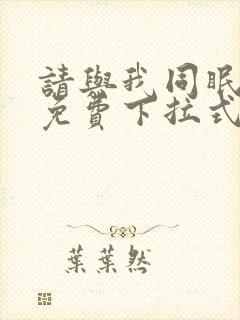 請與我同眠
免費下拉式
葉葉然